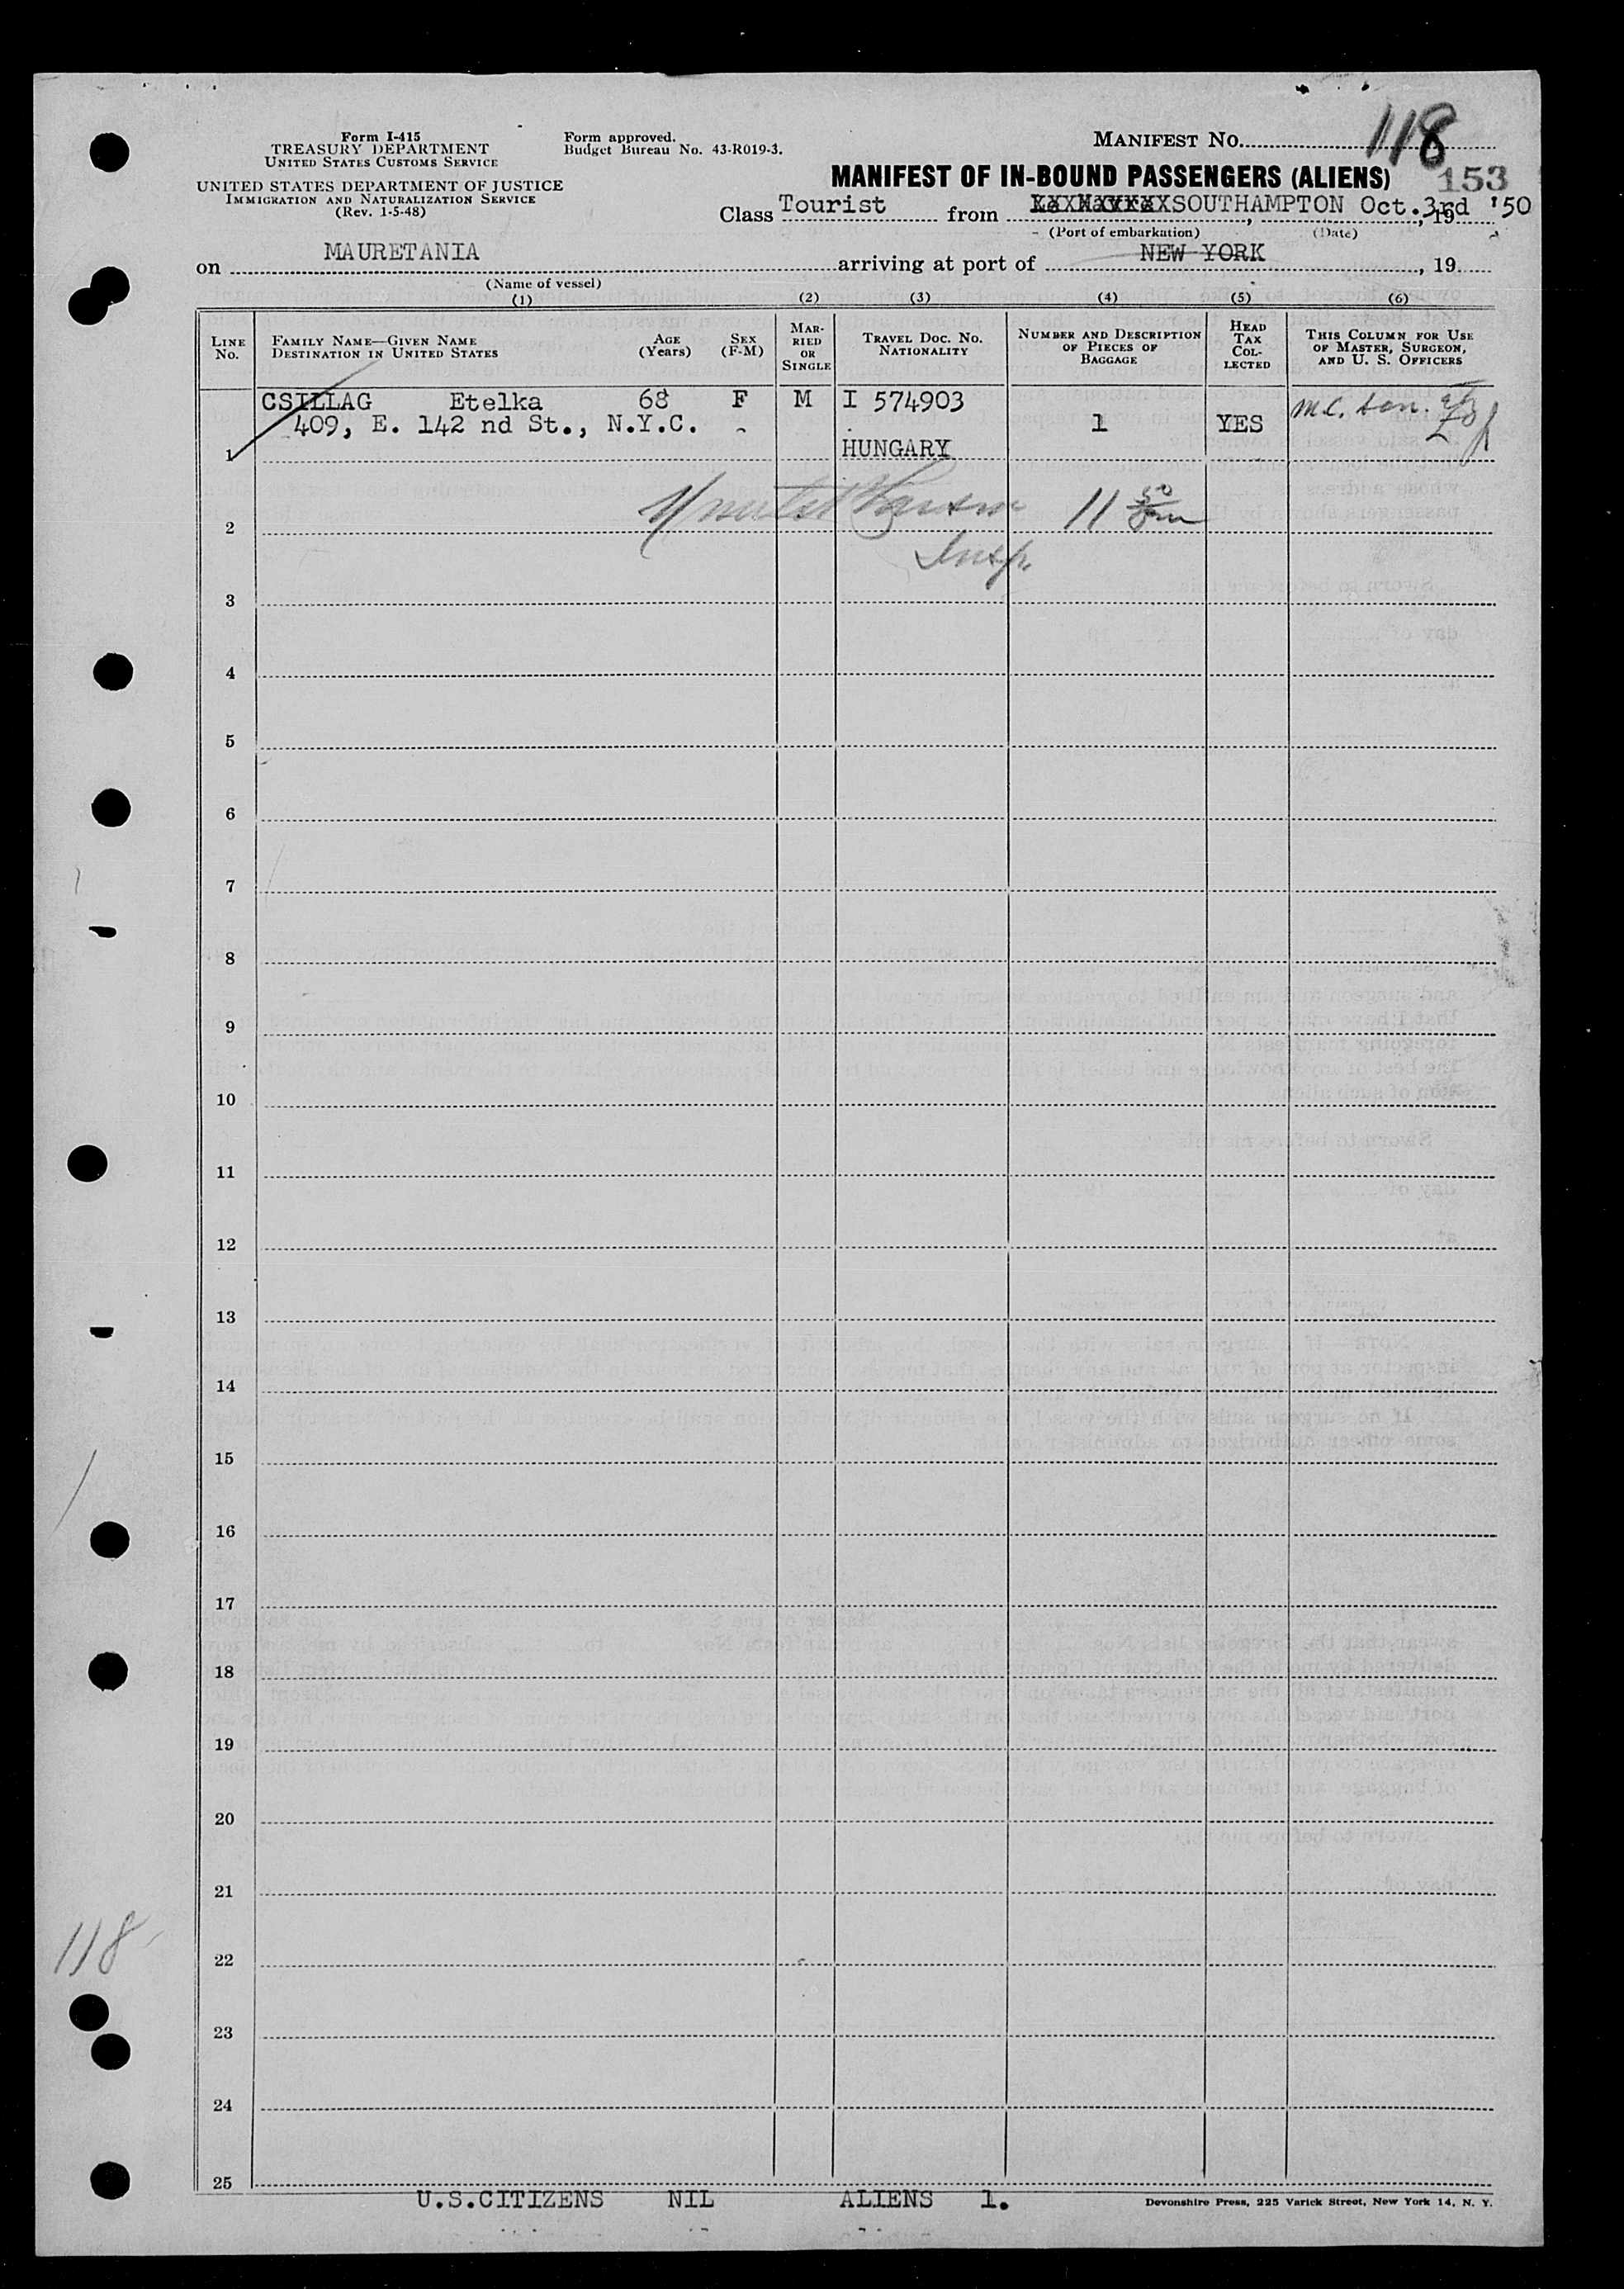 Form I-415
TREASURY DEPARTMENT
UNITED STATES CUSTOMS SERVICE
UNITED STATES DEPARTMENT OF JUSTICE
IMMIGRATION AND NATURALIZATION SERVICE
(Rev. 1-5-48)
Form approved.
Budget Bureau No. 43-R019-3.
MANIFEST No. 118
MANIFEST OF IN-BOUND PASSENGERS (ALIENS) 153
Class Tourist from SOUTHAMPTON Oct. 3rd, 19 '50
(Port of embarkation) (Date)
on MAURETANIA arriving at port of NEW YORK, 19
(Name of vessel)
(1) (2) (3) (4) (5) (6)
LINE No.
FAMILY NAME—GIVEN NAME
DESTINATION IN UNITED STATES
AGE (Years)
SEX (F-M)
MARRIED OR SINGLE
TRAVEL DOC. No.
NATIONALITY
NUMBER AND DESCRIPTION OF PIECES OF BAGGAGE
HEAD TAX COLLECTED
THIS COLUMN FOR USE OF MASTER, SURGEON, AND U. S. OFFICERS
1 CSILLAG Etelka 68 F M I 574903
409, E. 142 nd St., N.Y.C. 1 YES
HUNGARY
2
Insp.
3
4
5
6
7
8
9
10
11
12
13
14
15
16
17
18
19
20
21
22
118
23
24
25
U.S.CITIZENS NIL ALIENS 1.
Devonshire Press, 225 Varick Street, New York 14, N. Y.